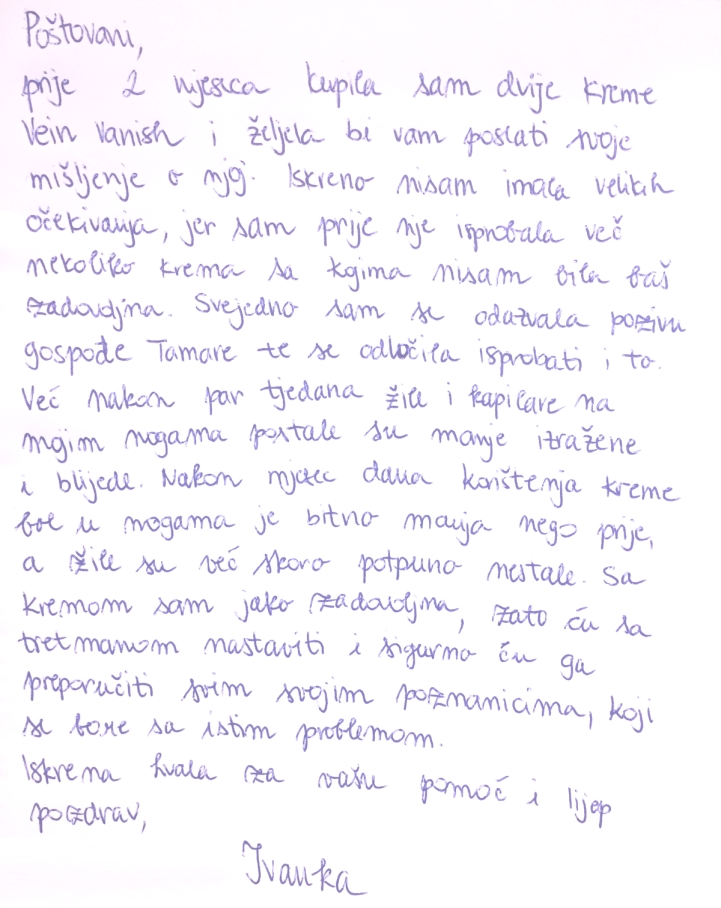 Poštovani,
prije 2 mjeseca kupila sam dvije kreme
Vein Vanish i željela bi vam poslati svoje
mišljenje o njoj. Iskreno nisam imala velikih
očekivanja, jer sam prije nje isprobala već
nekoliko krema sa kojima nisam bila baš
zadovoljna. Svejedno sam se odazvala pozivu
gospođe Tamare te se odločila isprobati i to.
Več nakon par tjedana žile i kapilare na
mojim nogama postale su manje izražene
i blijede. Nakon mjesec dana korištenja kreme
bol u nogama je bitno manja nego prije,
a žile su već skoro potpuno nestale. Sa
kremom sam jako zadovoljna, zato ću sa
tretmanom nastaviti i sigurno ću ga
preporučiti svim svojim poznanicima, koji
se bore sa istim problemom.
Iskrena hvala za vašu pomoć i lijep
pozdrav,
Ivanka